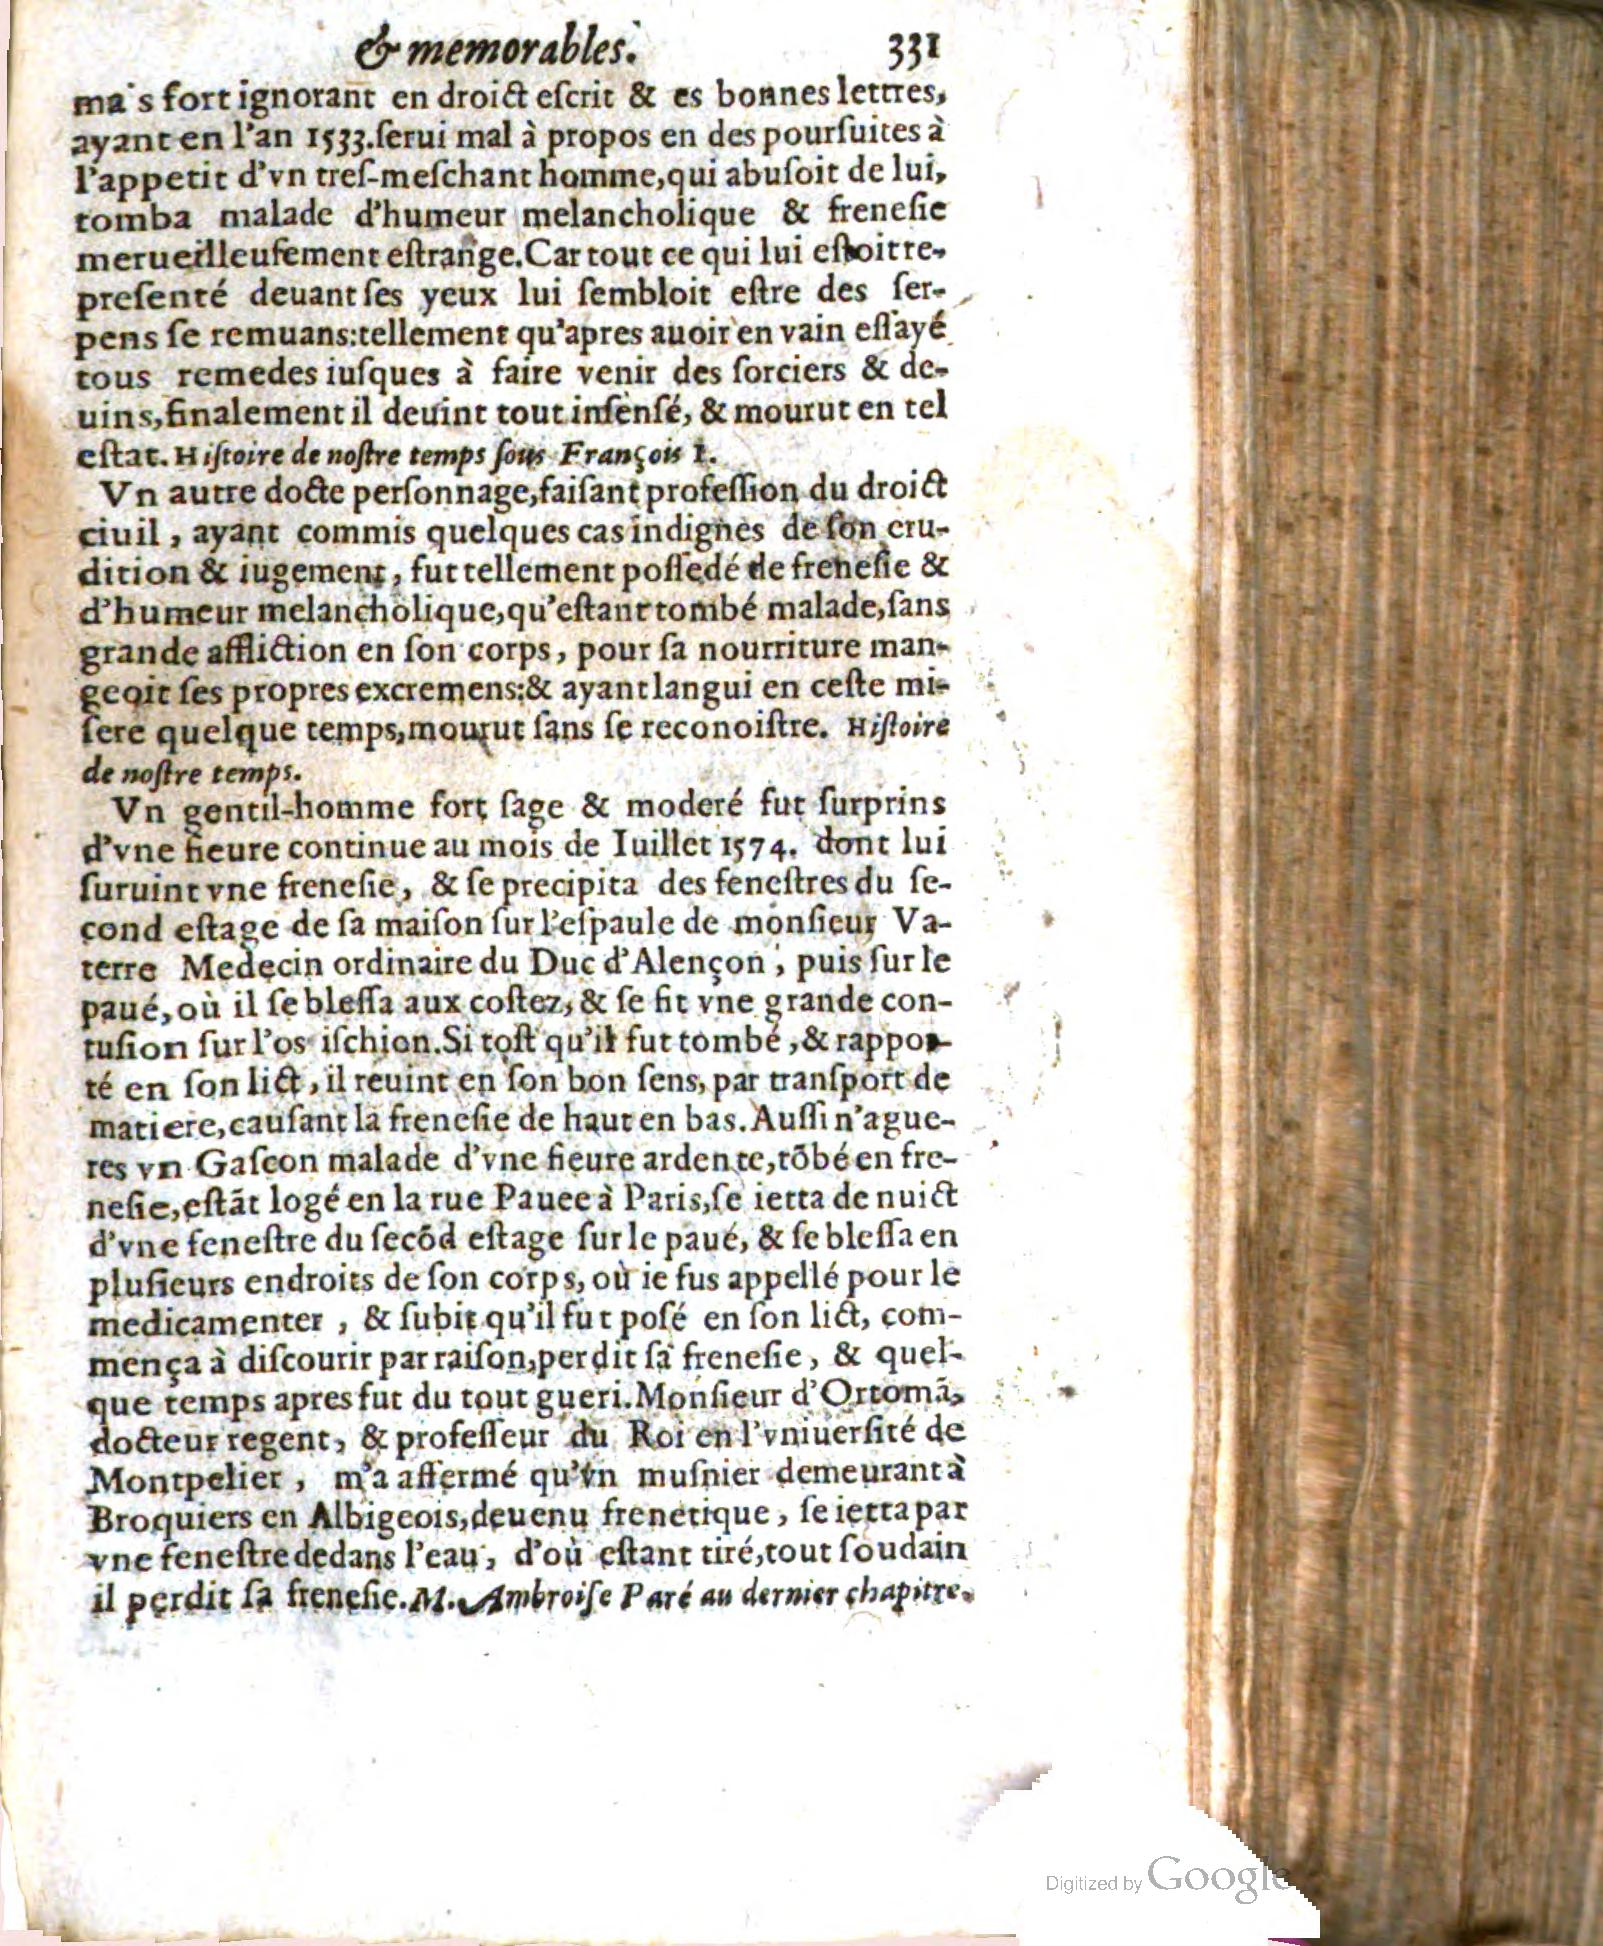 & memorables. 331
ma's fort ignorant en droict eſcrit & es bonnes lettres,
ayant en l'an 1533. ſerui mal à propos en des pourſuites à
l'appetit d'vn treſ-meſchant homme, qui abuſoit de lui,
tomba malade d'humeur melancholique & freneſie
merueilleuſement eſtrange. Car tout ce qui lui eſtoit re-
preſenté deuant ſes yeux lui ſembloit eſtre des ſer-
pens ſe remuans: tellement qu'apres auoir en vain eſſayé
tous remedes iuſques à faire venir des ſorciers & de-
uins, finalement il deuint tout inſenſé, & mourut en tel
eſtat. Hiſtoire de noſtre temps ſous François I.
Vn autre docte perſonnage, faiſant profeſſion du droict
ciuil, ayant commis quelques cas indignes de ſon eru-
dition & iugement, fut tellement poſſedé de freneſie &
d'humeur melancholique, qu'eſtant tombé malade, ſans
grande affliction en ſon corps, pour ſa nourriture man-
geoit ſes propres excremens: & ayant langui en ceſte mi-
ſere quelque temps, mourut ſans ſe reconoiſtre. Hiſtoire
de noſtre temps.
Vn gentil-homme fort ſage & moderé fut ſurprins
d'vne fieure continue au mois de Iuillet 1574. dont lui
ſuruint vne freneſie, & ſe precipita des feneſtres du ſe-
cond eſtage de ſa maiſon ſur l'eſpaule de monſieur Va-
terre Medecin ordinaire du Duc d'Alençon, puis ſur le
paué, où il ſe bleſſa aux coſtez, & ſe fit vne grande con-
tuſion ſur l'os iſchion. Si toſt qu'il fut tombé, & rappor-
té en ſon lict, il reuint en ſon bon ſens, par tranſport de
matiere, cauſant la freneſie de haut en bas. Auſſi n'ague-
res vn Gaſcon malade d'vne fieure ardente, tõbé en fre-
neſie, eſtãt logé en la rue Pauee à Paris, ſe ietta de nuict
d'vne feneſtre du ſecõd eſtage ſur le paué, & ſe bleſſa en
pluſieurs endroits de ſon corps, où ie fus appellé pour le
medicamenter, & ſubit qu'il fut poſé en ſon lict, com-
mença à diſcourir par raiſon, perdit ſa freneſie, & quel-
que temps apres fut du tout gueri. Monſieur d'Ortomã,
docteur regent, & profeſſeur du Roi en l'vniuerſité de
Montpelier, m'a affermé qu'vn muſnier demeurant à
Broquiers en Albigeois, deuenu frenetique, ſe ietta par
vne feneſtre dedans l'eau, d'où eſtant tiré, tout ſoudain
il perdit ſa freneſie. M. Ambroiſe Paré au dernier chapitre.
Digitized by Google